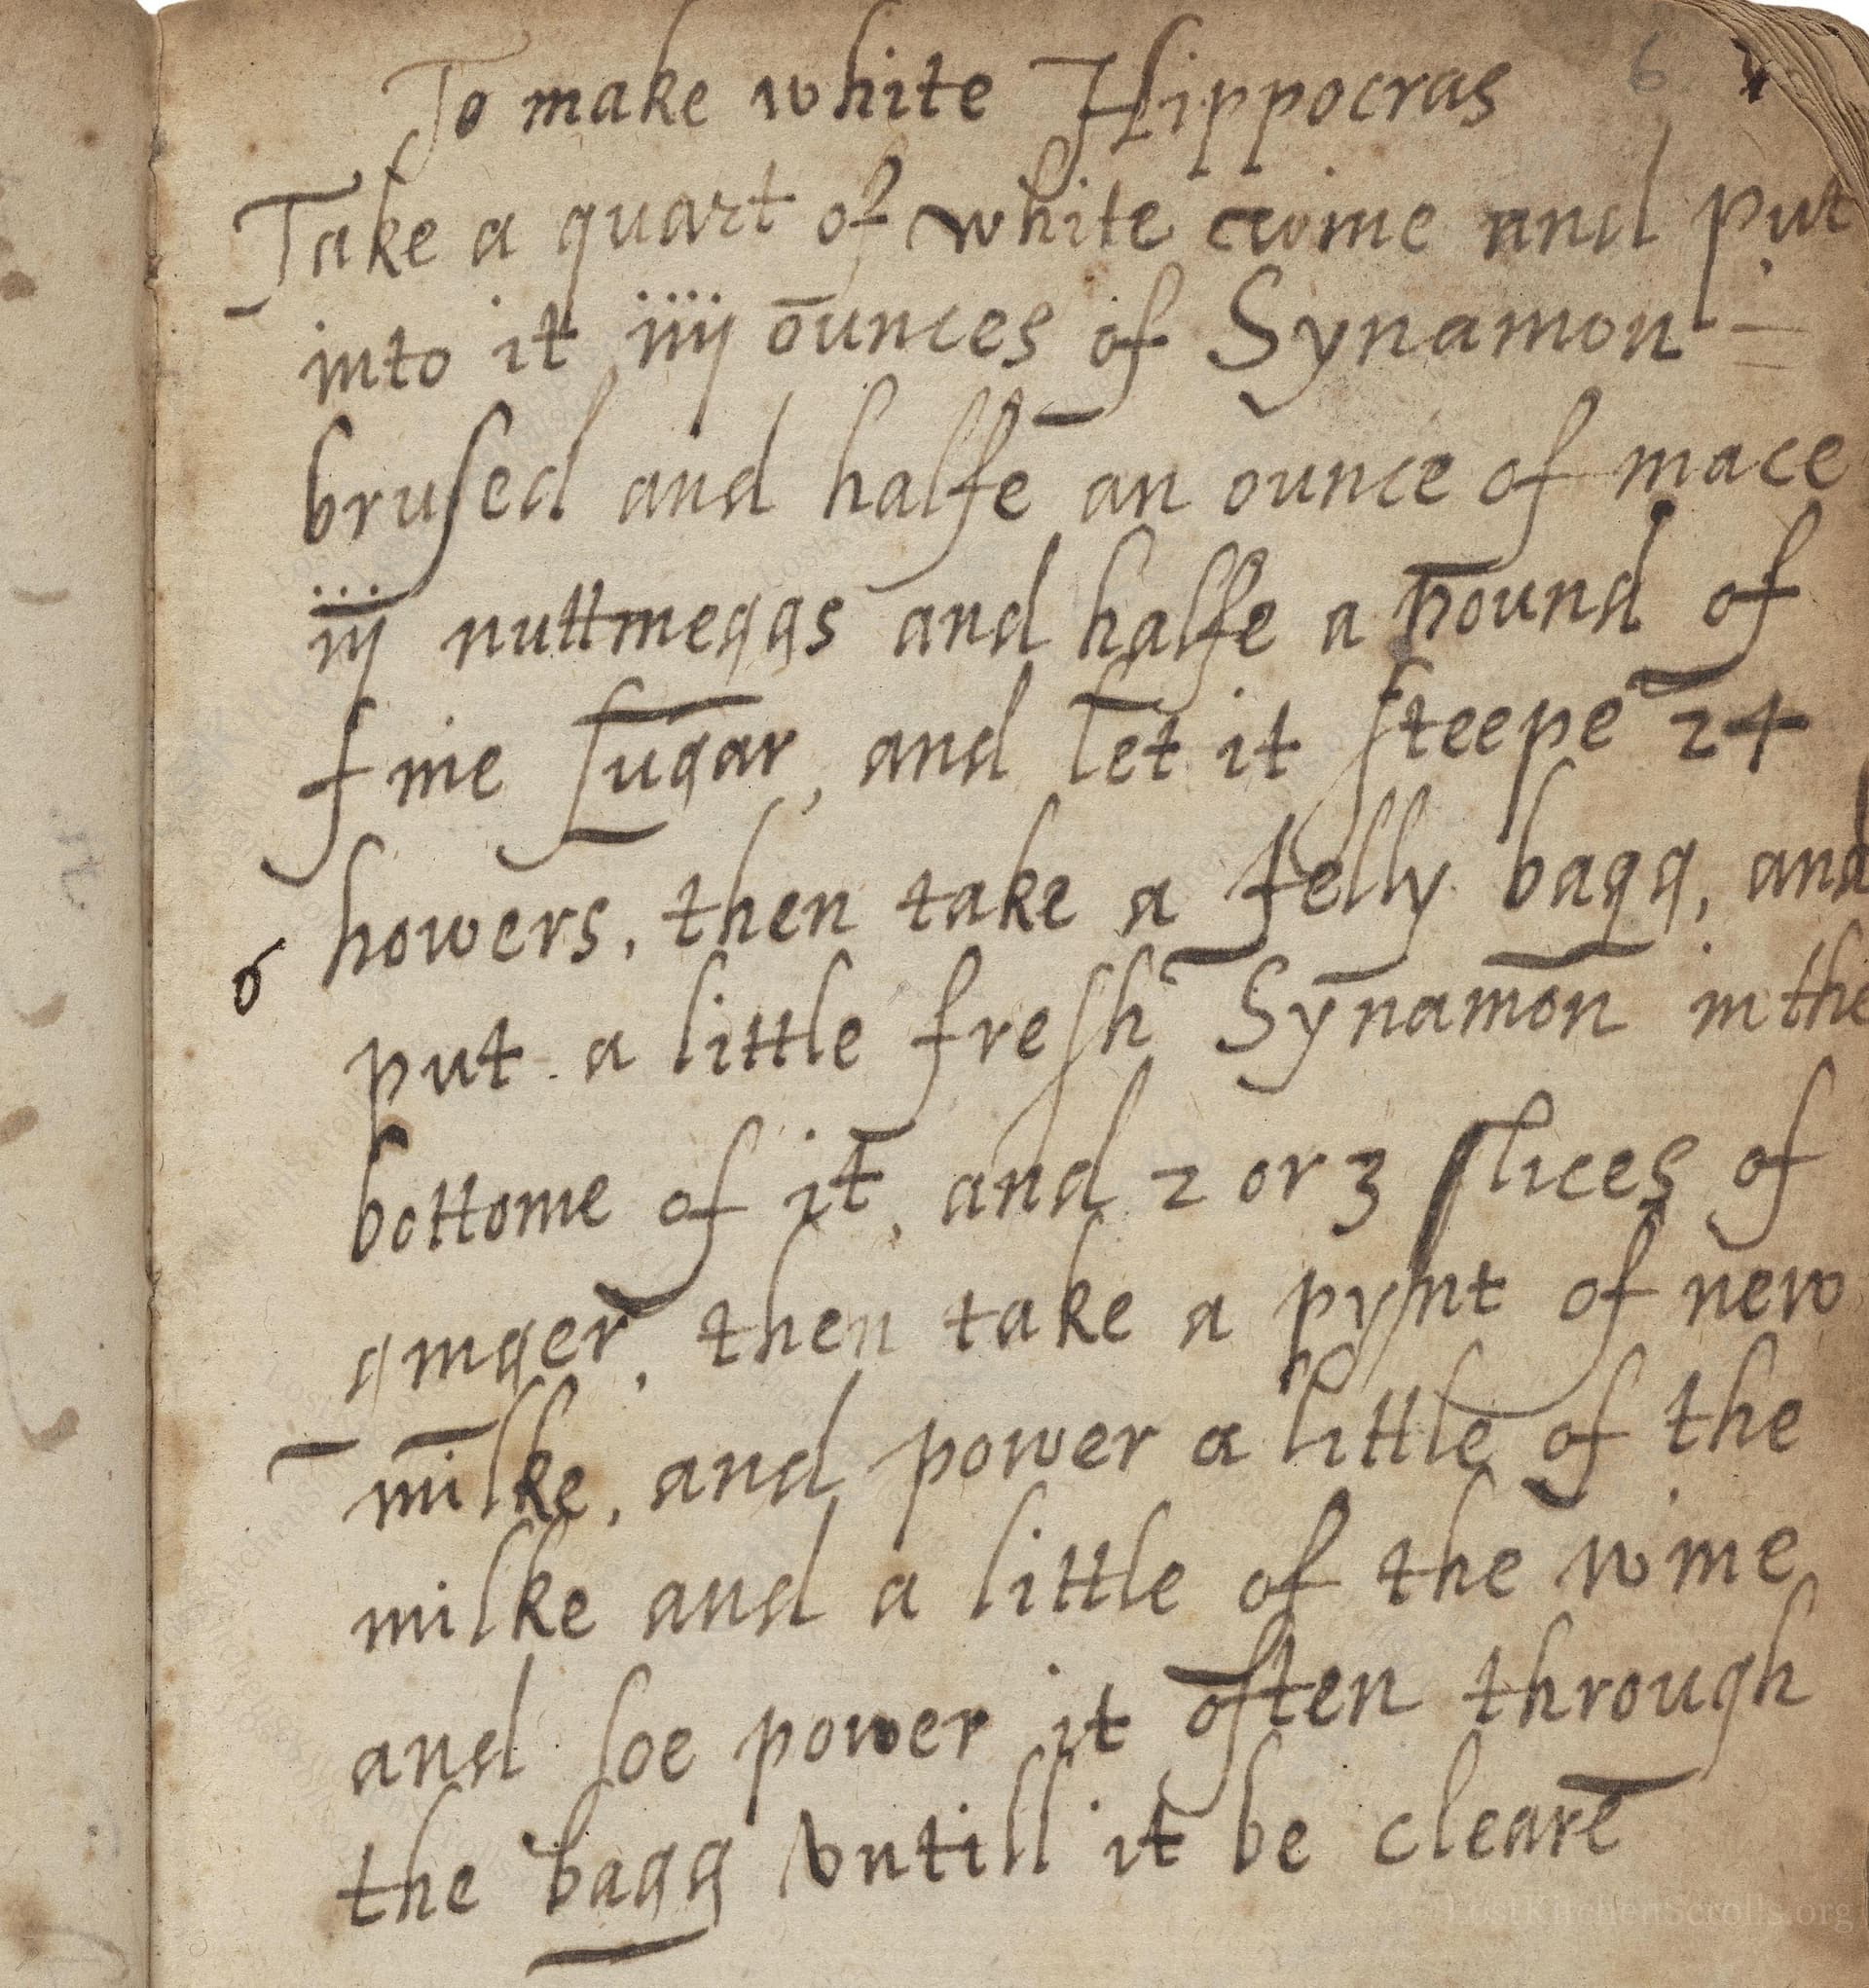 To make white Hippocras 6
Take a quart of white wine and put
into it iiij ounces of Synamon =
bruſed and halfe an ounce of mace
iij nuttmeggs and halfe a pound of
fine ſugar, and let it ſteepe 24
howers, then take a Jelly bagg, and
6
put a little freſh Synamon in the
bottome of it, and 2 or 3 ſlices of
ginger, then take a pynt of new
milke, and power a little of the
milke and a little of the wine
and ſoe power it often through
the bagg vntill it be cleare
LostKitchenScrolls.org